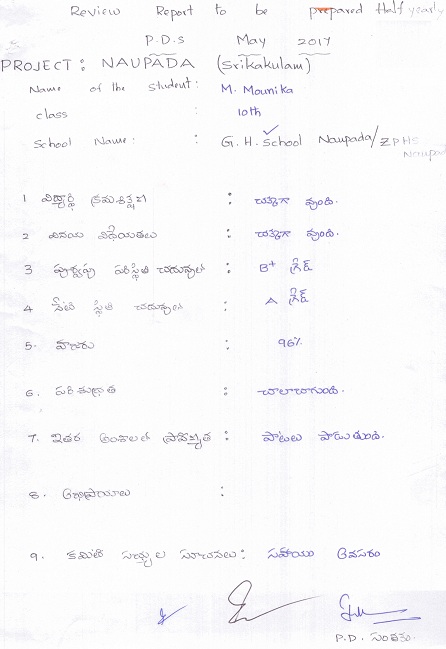 Review Report to be prepared Half yearly
P.D.S May 2017
PROJECT: NAUPADA (Srikakulam)
Name of the Student: M. Mounika
class : 10th
School Name: : G. H. School Naupada/ZPHS Naupada
1 విద్యార్థి క్రమశిక్షణ : చక్కగా వుంది.
2 వినయ విధేయతలు : చక్కగా వుంది.
3 పూర్వపు పరిస్థితి చదువులో : B+ గ్రేడ్
4 నేటి స్థితి చదువులో : A గ్రేడ్
5. హాజరు : 96%
6. పరిశుభ్రత : చాలాబాగుంది.
7. ఇతర అంశాలలో ప్రావీణ్యత : పాటలు పాడుతుంది.
8. అభిప్రాయాలు :
9. కమిటీ సభ్యుల సూచనలు: సహాయం అవసరం
P.D. సంతకం.